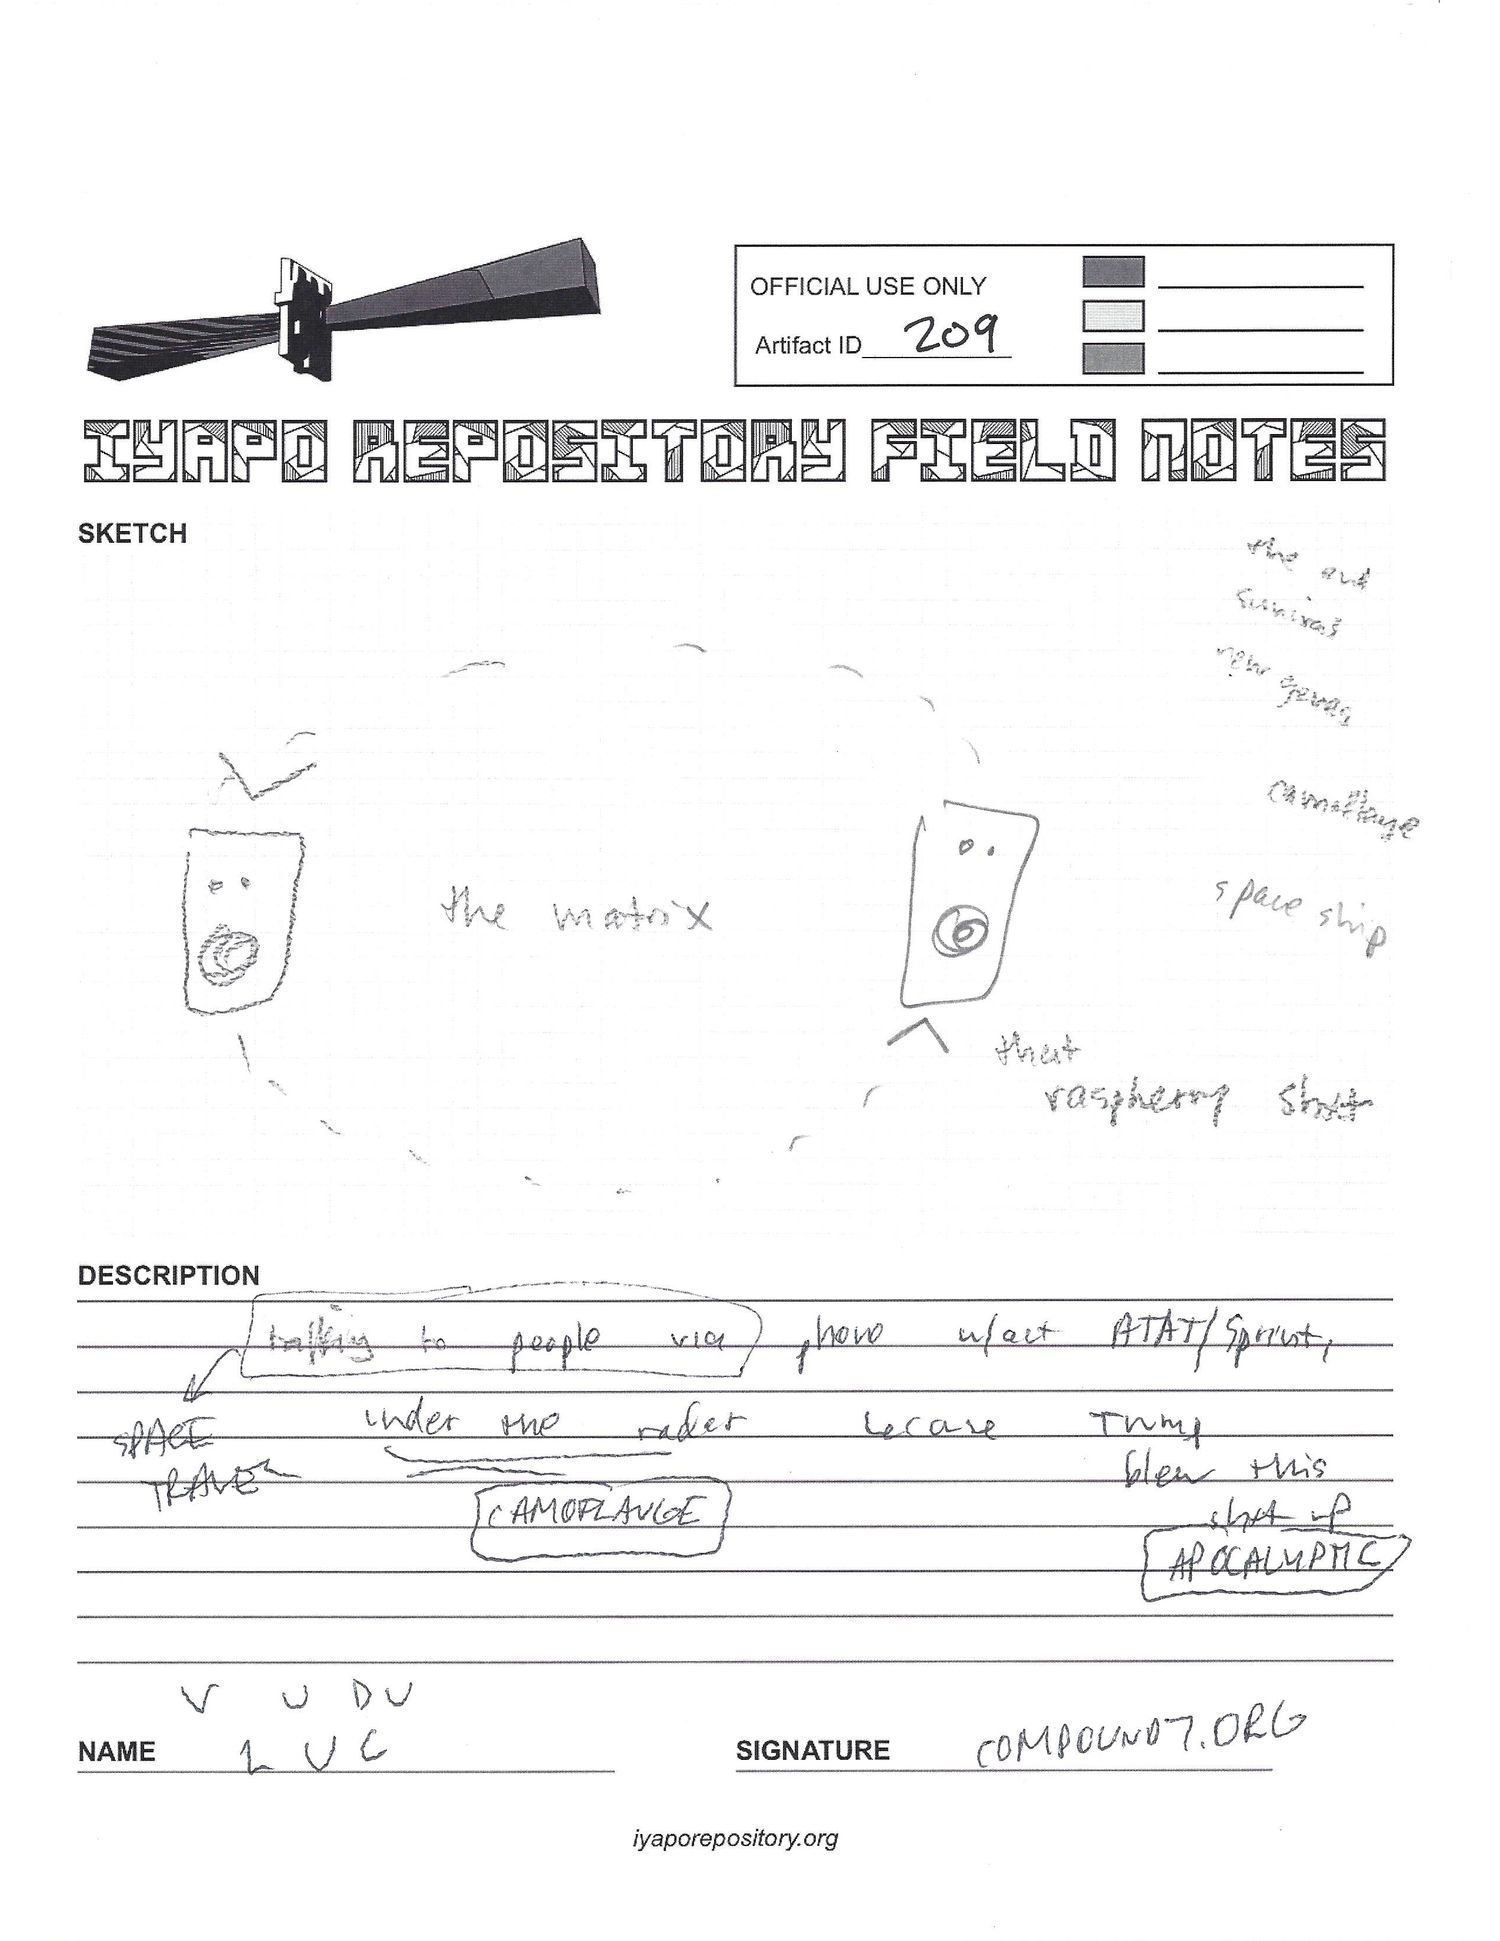 OFFICIAL USE ONLY
Artifact ID 209
IYAPO REPOSITORY FIELD NOTES
SKETCH
the
survival
new
camoflauge
space ship
the matrix
that
raspberry
DESCRIPTION
talking to people via phone w/out AT&T/Sprint,
under the radar because Trump
SPACE
TRAVEL
blew this
up
CAMOFLAUGE
APOCALYPTIC
V U D U
NAME L U C
SIGNATURE COMPOUND7.ORG
iyaporepository.org